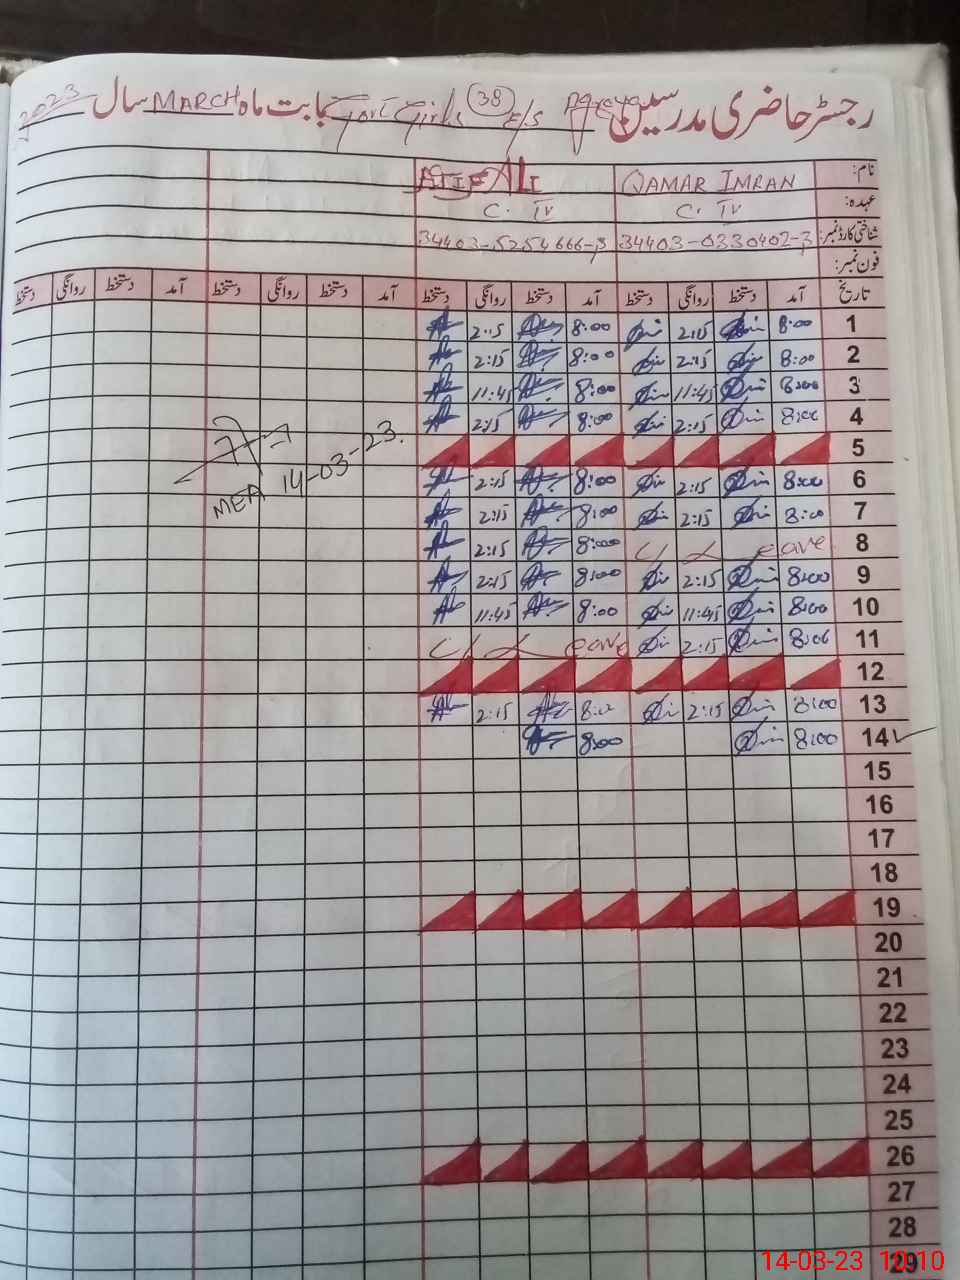 رجسٹر حاضری مدرسین Govt Girls E/S 38 بابت ماہ MARCH سال 2023
نام: QAMAR IMRAN ATIF ALI
عہدہ: C. IV C. IV
شناختی کارڈ نمبر: 34403-0330402-3 34403-5254666-3
فون نمبر:
تاریخ آمد دستخط روانگی دستخط آمد دستخط روانگی دستخط آمد دستخط روانگی دستخط آمد دستخط روانگی دستخط
1 8:00 2:15 8:00 2:15
2 8:00 2:15 8:00 2:15
3 8:00 11:45 8:00 11:45
4 8:00 2:15 8:00 2:15
5
6 8:00 2:15 8:00 2:15
7 8:00 2:15 8:00 2:15
8 C/Leave 8:00 2:15
9 8:00 2:15 8:00 2:15
10 8:00 11:45 8:00 11:45
11 8:00 2:15 C/Leave
12
13 8:00 2:15 8:00 2:15
14 8:00 8:00
MEA 14-03-23.
15
16
17
18
19
20
21
22
23
24
25
26
27
28
29
14-03-23 10:10